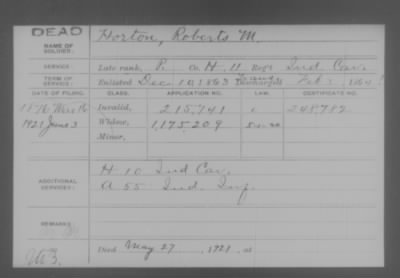 DEAD
NAME OF SOLDIER: Horton, Roberts M.
SERVICE: Late rank, P. Co. H. 11 Reg't Ind. Cav.
TERM OF SERVICE: Enlisted Dec. 10, 1863 Discharged Feb. 1, 1864
DATE OF FILING. CLASS. APPLICATION NO. LAW. CERTIFICATE NO.
1876 Mar. Invalid, 215,741 248,782
1921 June 3 Widow, 1,175,209
Minor,
ADDITIONAL SERVICES: H 10 Ind Cav.
A 55 Ind. Inf.
REMARKS:
Died May 27, 1921, at